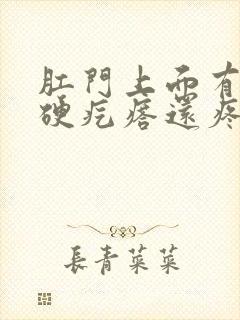 肛門上面有
硬疙瘩還疼
長青菜菜